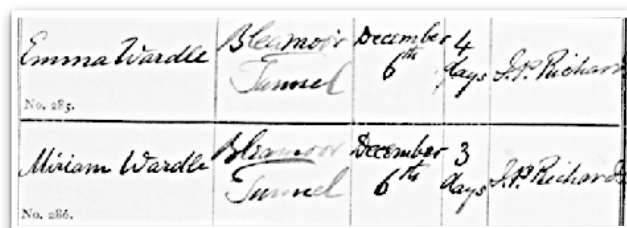 Emma Wardle Bleamoor Tunnel December 6th 4 days J.P. Richard
No. 285.
Miriam Wardle Bleamoor Tunnel December 6th 3 days J.P. Richards
No. 286.